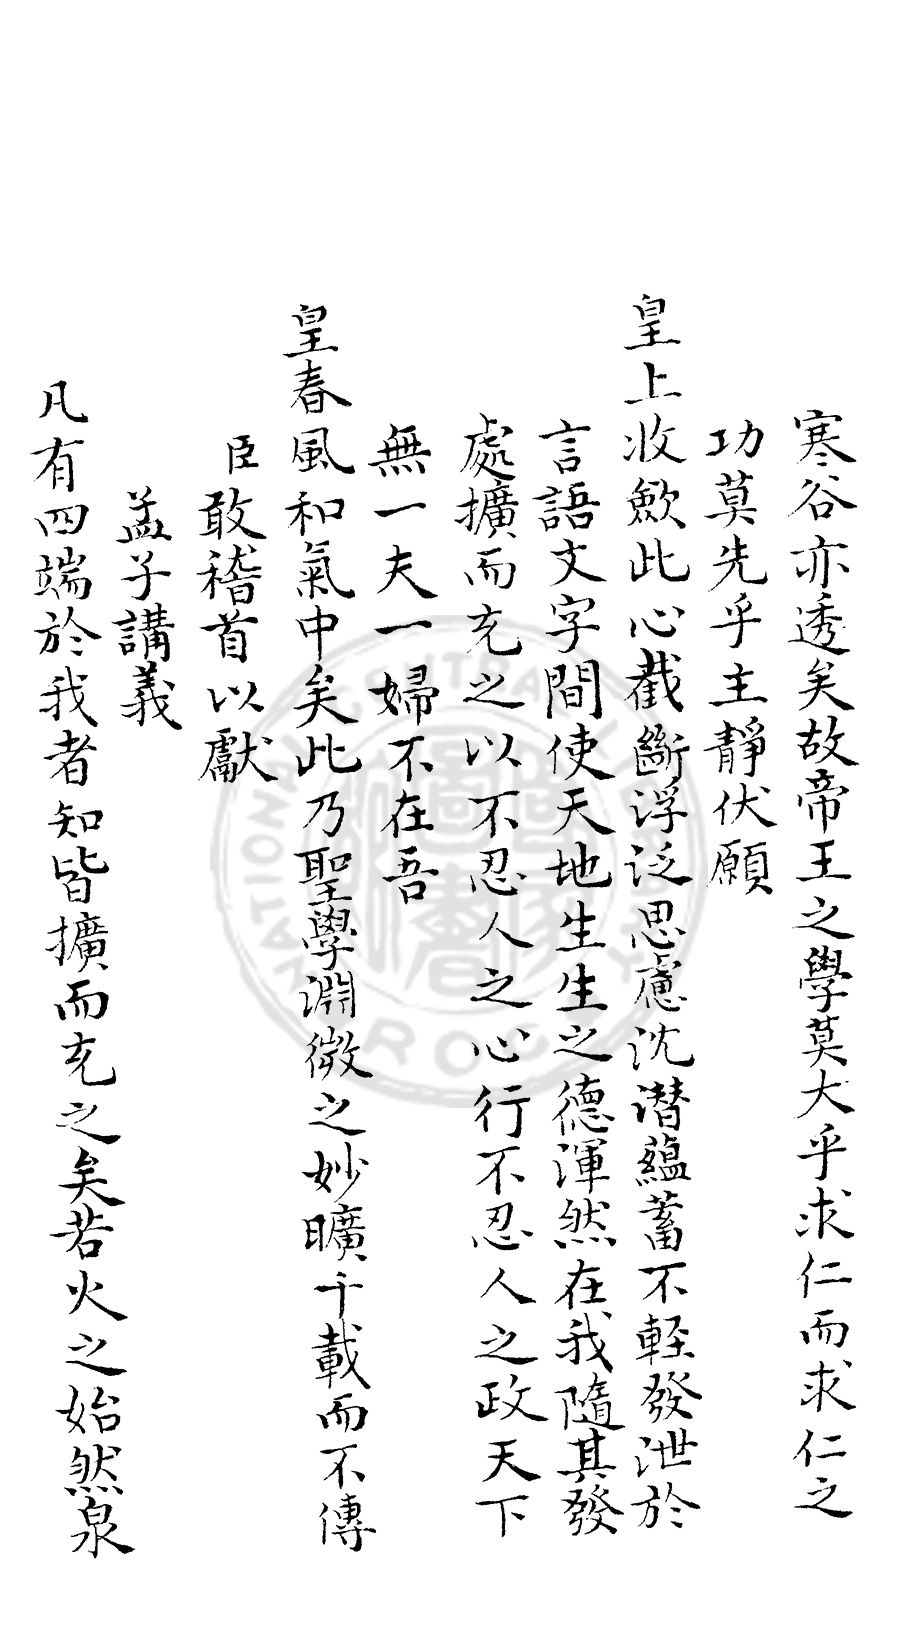 寒谷亦透矣故帝王之學莫大乎求仁而求仁之
功莫先乎主靜伏願
皇上收歛此心截斷浮泛思慮沈潛蘊蓄不輕發泄於
言語文字間使天地生生之德渾然在我隨其發
處擴而充之以不忍人之心行不忍人之政天下
無一夫一婦不在吾
皇春風和氣中矣此乃聖學淵微之妙曠千載而不傳
臣敢稽首以獻
孟子講義
凡有四端於我者知皆擴而充之矣若火之始然泉
NATIONAL CENTRAL LIBRARY
R.O.C.
國家圖書館